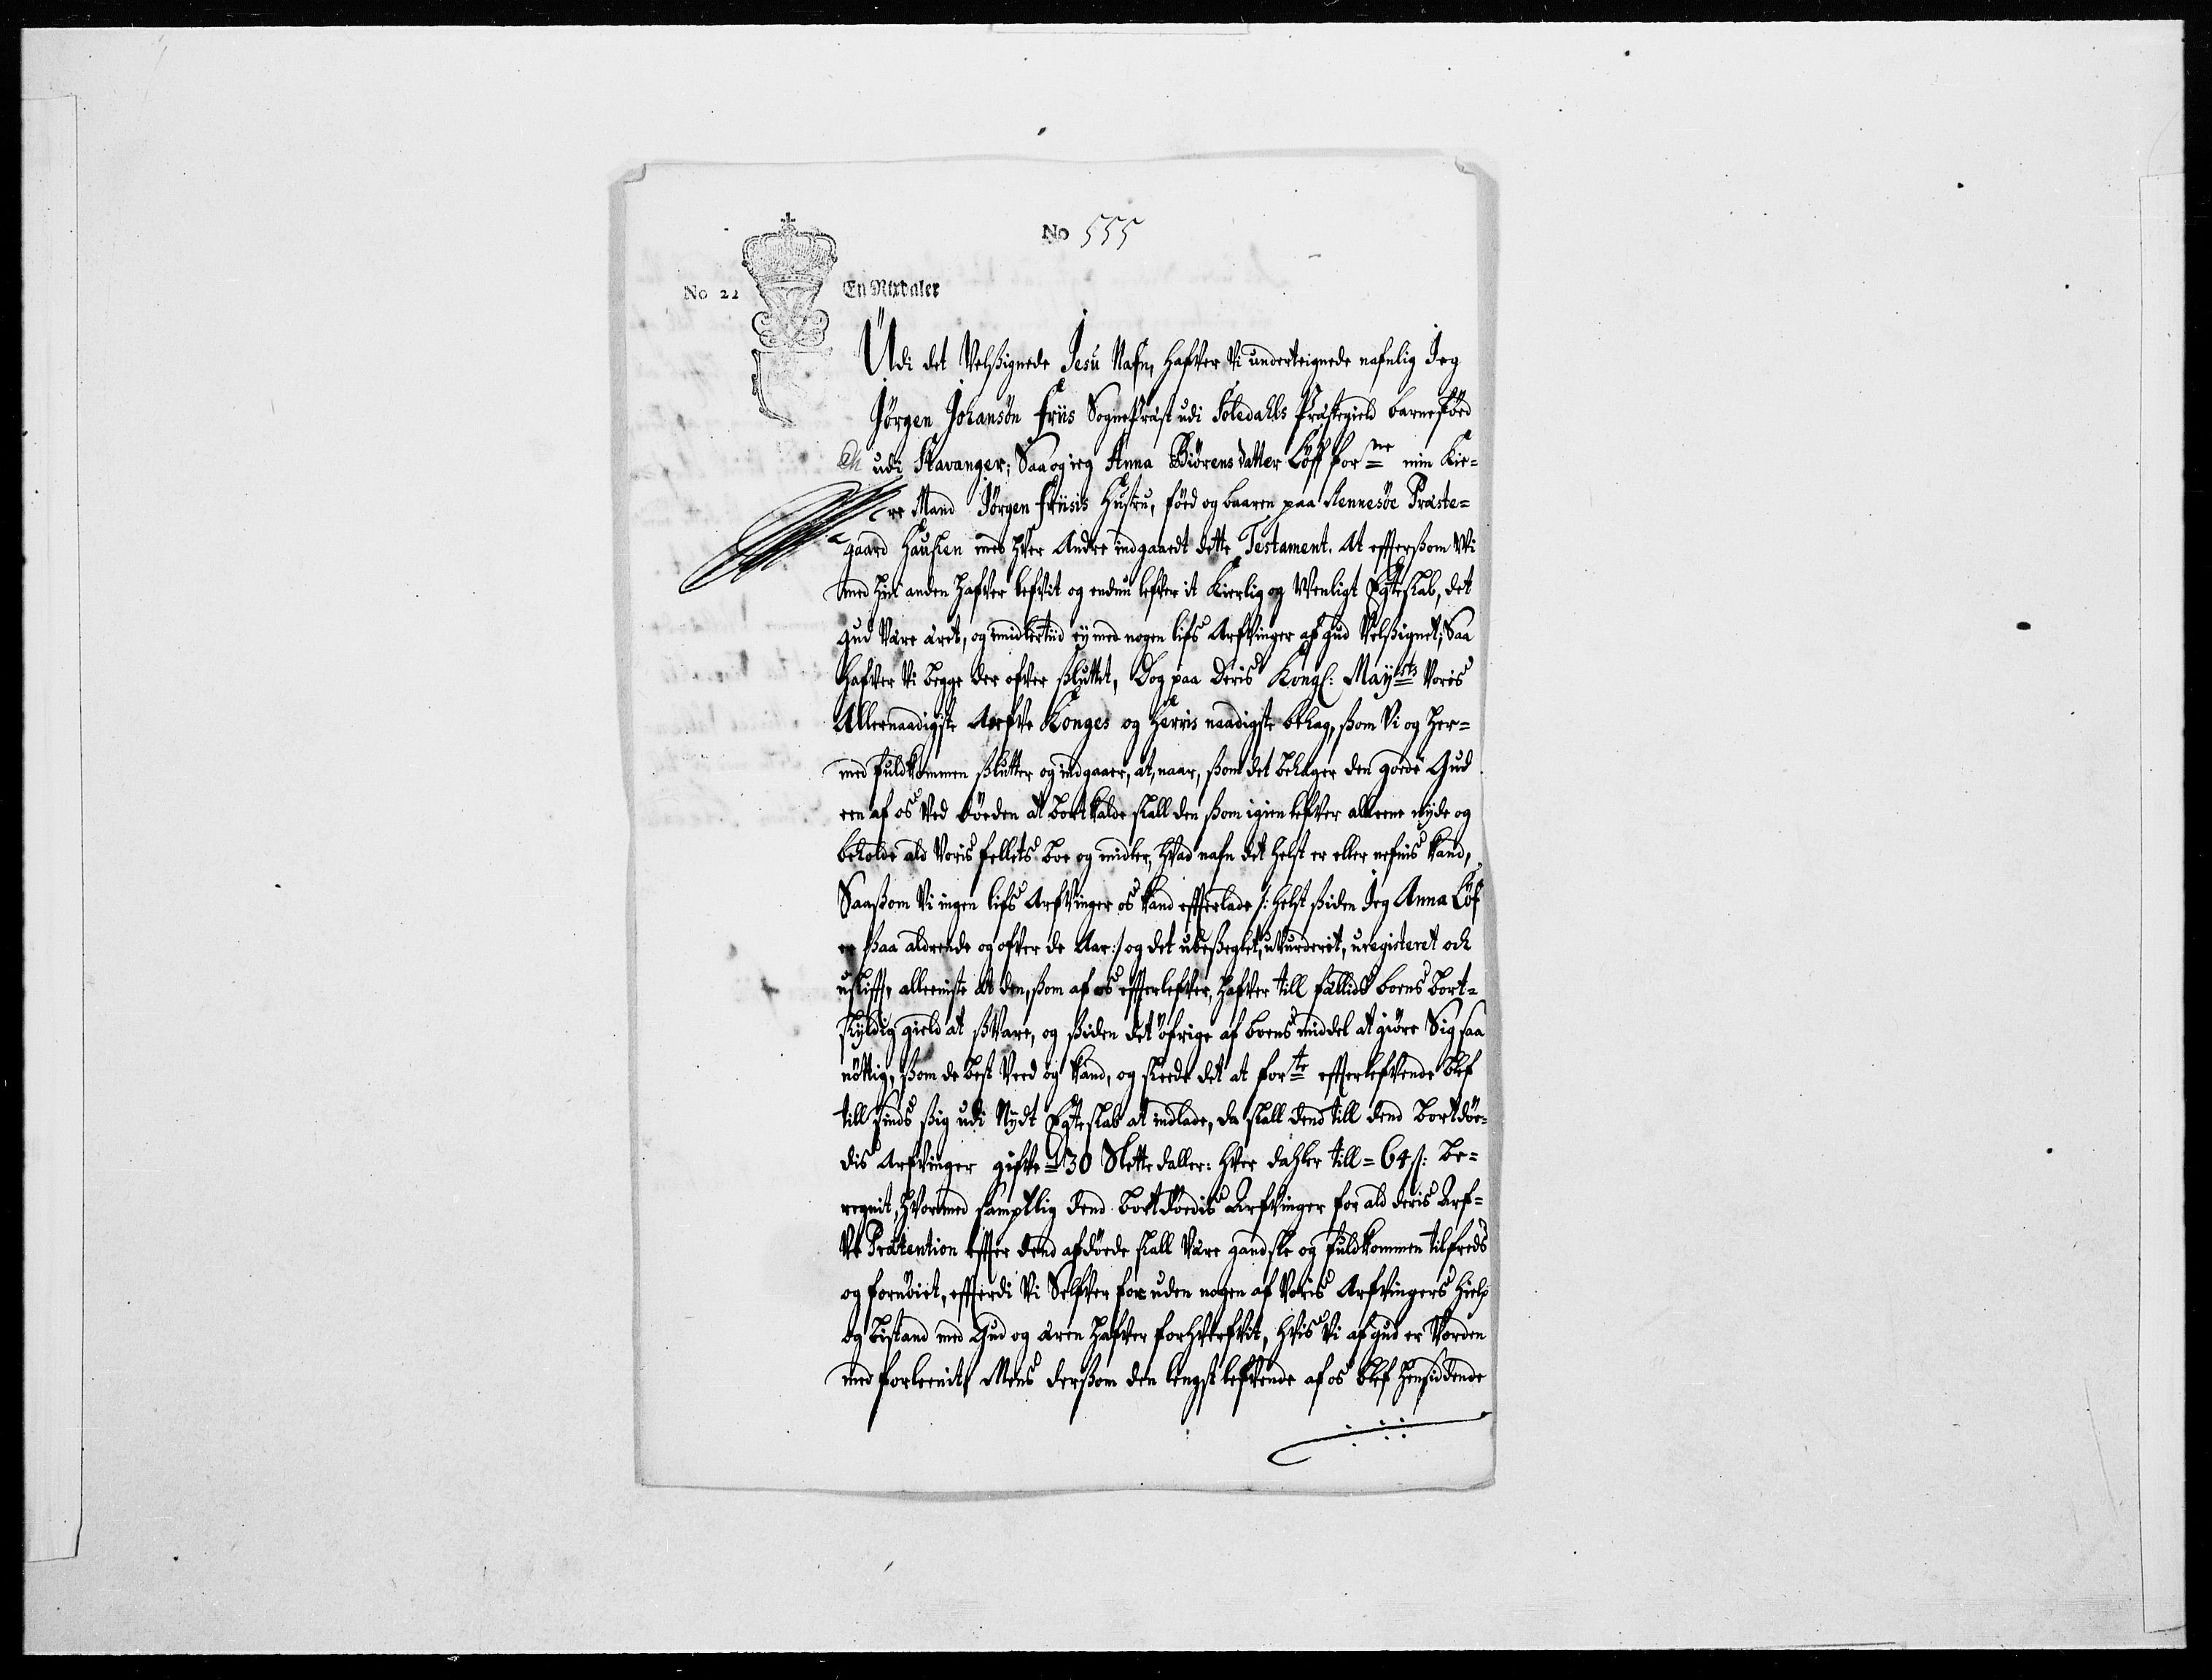 No 555
No 22
En Rixdaler
Udi det Velsignede Jesu Nafn, hafver Vi underteignede nafnlig Jeg
Jörgen Johansön Friis Sognepræst udi Soledahls Præstegield barneföed
udi Stavanger; Saa og ieg Anna Biörensdatter Löff forne min Kie-
re Mand Jörgen Friisis Hustru, föed og baaren paa Rennesöe Præste-
gaard Haufven med hver Andre indgaaedt dette Testament. At effterßom Wi
med hin anden hafver lefvit og endnu lefver it Kierlig og Venligt Egteskab, det
Gud Være æret, og imidlertid ey med nogen lifs Arfvinger af Gud Velßignet; Saa
hafver Vi begge der ofver ßluttet, Dog paa Deris Kongl: Maysts Voris
Allernaadigste Arfve Konges og Herris naadigste behag, ßom Vi og her-
med fuldkommen ßlutter og indgaaer, at, naar, ßom det behager den goede Gud
een af os Ved döeden at bortkalde skall den ßom igien lefver alleene nyde og
beholde ald Voris fellets boe og midler, hvad nafn det helst er eller nefnis kand,
Saaßom Vi ingen lifs Arfvinger os kand effterlade /: helst ßiden Jeg Anna Löf
er ßaa aldrende og ofver de Aar :/ og det ubeßeglet, uvurderit, uregisteret och
uskifft, alleeniste at den, ßom af os effterlefver, hafver till fællids boens bort-
skyldig gield at ßvare, og ßiden det öfrige af boens middel at giöre Sig saa
nöttig, ßom de best Veed og kand, og skeede det at forte effterlefvende blef
till sinds ßig udi Nydt Egteskab at indlade, da skall dend till dend bortdöe-
dis Arfvinger gifve = 130 Slette daller: hver dahler till = 64 s: be-
regnit, hvormed samptlig dend bortdöedis Arfvinger for ald deris Arf-
ve Prætention effter dend afdöede skall Være gandske og fuldkommen tilfreds
og fornöiet, effterdi Vi Selfver for uden nogen af Voris Arfvingers hielp
og bistand med Gud og æren hafver forhverfvit, hvis Vi af Gud er Vorden
med forleenit, Mens derßom den lengst lefvende af os blef hensiddende